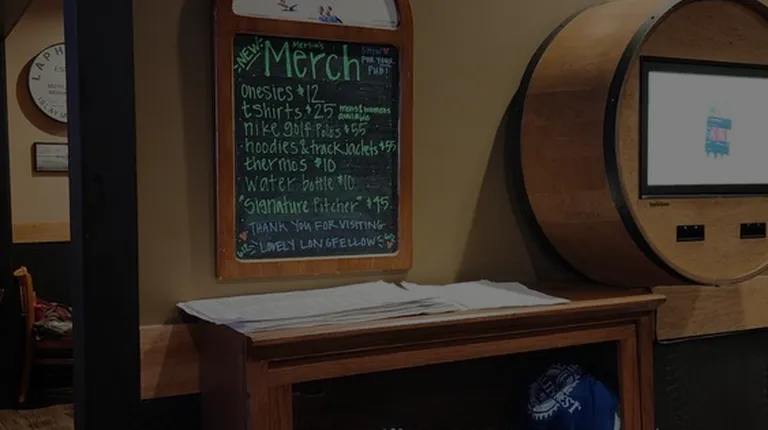 LAPH
ISLAY
NEW
Merlin's
Merch
SHOW ♥
FOR YOUR
PUB!
onesies $12
tshirts $25 mens & womens
available
nike golf Polos $55
hoodies & track jackets $55
thermos $10
water bottle $10
"Signature Pitcher" $45
THANK YOU FOR VISITING
LOVELY LONGFELLOW